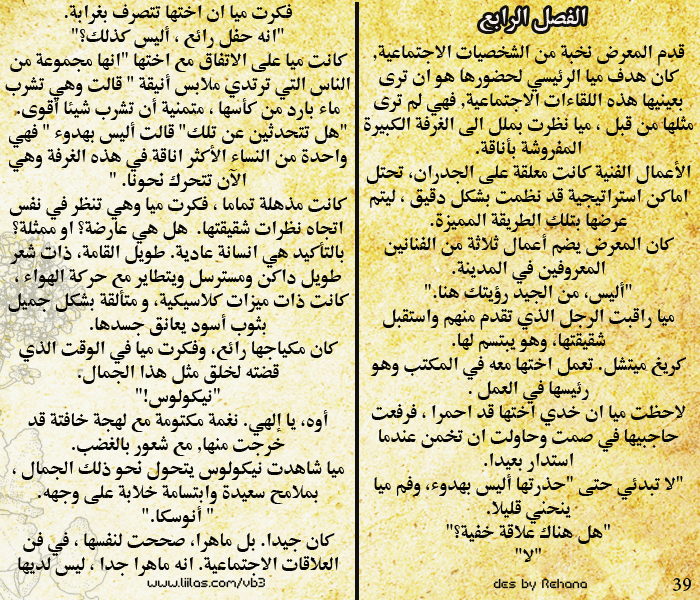 الفصل الرابع
قدم المعرض نخبة من الشخصيات الاجتماعية,
كان هدف ميا الرئيسي لحضورها هو ان ترى
بعينيها هذه اللقاءات الاجتماعية, فهي لم ترى
مثلها من قبل ، ميا نظرت بملل الى الغرفة الكبيرة
المفروشة بأناقة.
الأعمال الفنية كانت معلقة على الجدران، تحتل
اماكن استراتيجية قد نظمت بشكل دقيق ، ليتم
عرضها بتلك الطريقة المميزة.
كان المعرض يضم أعمال ثلاثة من الفنانين
المعروفين في المدينة.
"أليس، من الجيد رؤيتك هنا."
ميا راقبت الرجل الذي تقدم منهم واستقبل
شقيقتها، وهو يبتسم لها.
كريغ ميتشل. تعمل اختها معه في المكتب وهو
رئيسها في العمل .
لاحظت ميا ان خدي اختها قد احمرا ، فرفعت
حاجبيها في صمت وحاولت ان تخمن عندما
استدار بعيدا.
"لا تبدئي حتى "حذرتها أليس بهدوء، وفم ميا
ينحني قليلا.
"هل هناك علاقة خفية؟"
"لا"
des by Rehana
39
فكرت ميا ان اختها تتصرف بغرابة.
"انه حفل رائع ، أليس كذلك؟"
كانت ميا على الاتفاق مع اختها "انها مجموعة من
الناس التي ترتدي ملابس أنيقة " قالت وهي تشرب
ماء بارد من كأسها ، متمنية أن تشرب شيئا أقوى.
"هل تتحدثين عن تلك" قالت أليس بهدوء " فهي
واحدة من النساء الأكثر اناقة في هذه الغرفة وهي
الآن تتحرك نحونا. "
كانت مذهلة تماما ، فكرت ميا وهي تنظر في نفس
اتجاه نظرات شقيقتها. هل هي عارضة؟ او ممثلة؟
بالتأكيد هي انسانة عادية. طويل القامة، ذات شعر
طويل داكن ومسترسل ويتطاير مع حركة الهواء ،
كانت ذات ميزات كلاسيكية، و متألقة بشكل جميل
بثوب أسود يعانق جسدها.
كان مكياجها رائع، وفكرت ميا في الوقت الذي
قضته لخلق مثل هذا الجمال.
"نيكولوس!"
أوه، يا إلهي. نغمة مكتومة مع لهجة خافتة قد
خرجت منها, مع شعور بالغضب.
ميا شاهدت نيكولوس يتحول نحو ذلك الجمال ،
بملامح سعيدة وابتسامة خلابة على وجهه.
" أنوسكا."
كان جيدا. بل ماهرا، صححت لنفسها ، في فن
العلاقات الاجتماعية. انه ماهرا جدا ، ليس لديها
www.liilas.com/vb3